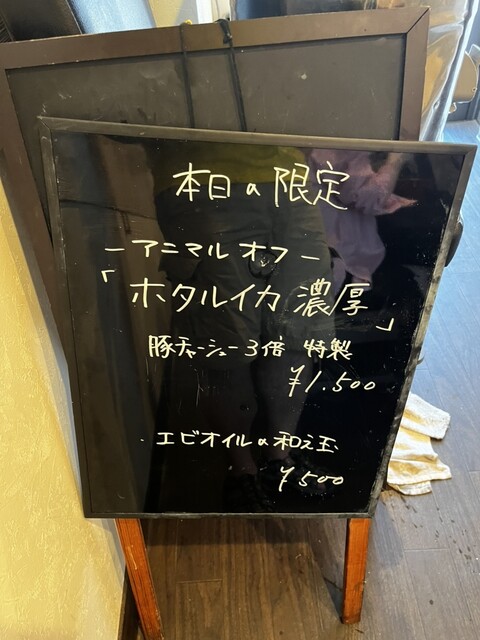 本日の限定
ーアニマルオフー
「ホタルイカ濃厚」
豚チャーシュー3倍 特製
¥1.500
・エビオイルの和え玉
¥500